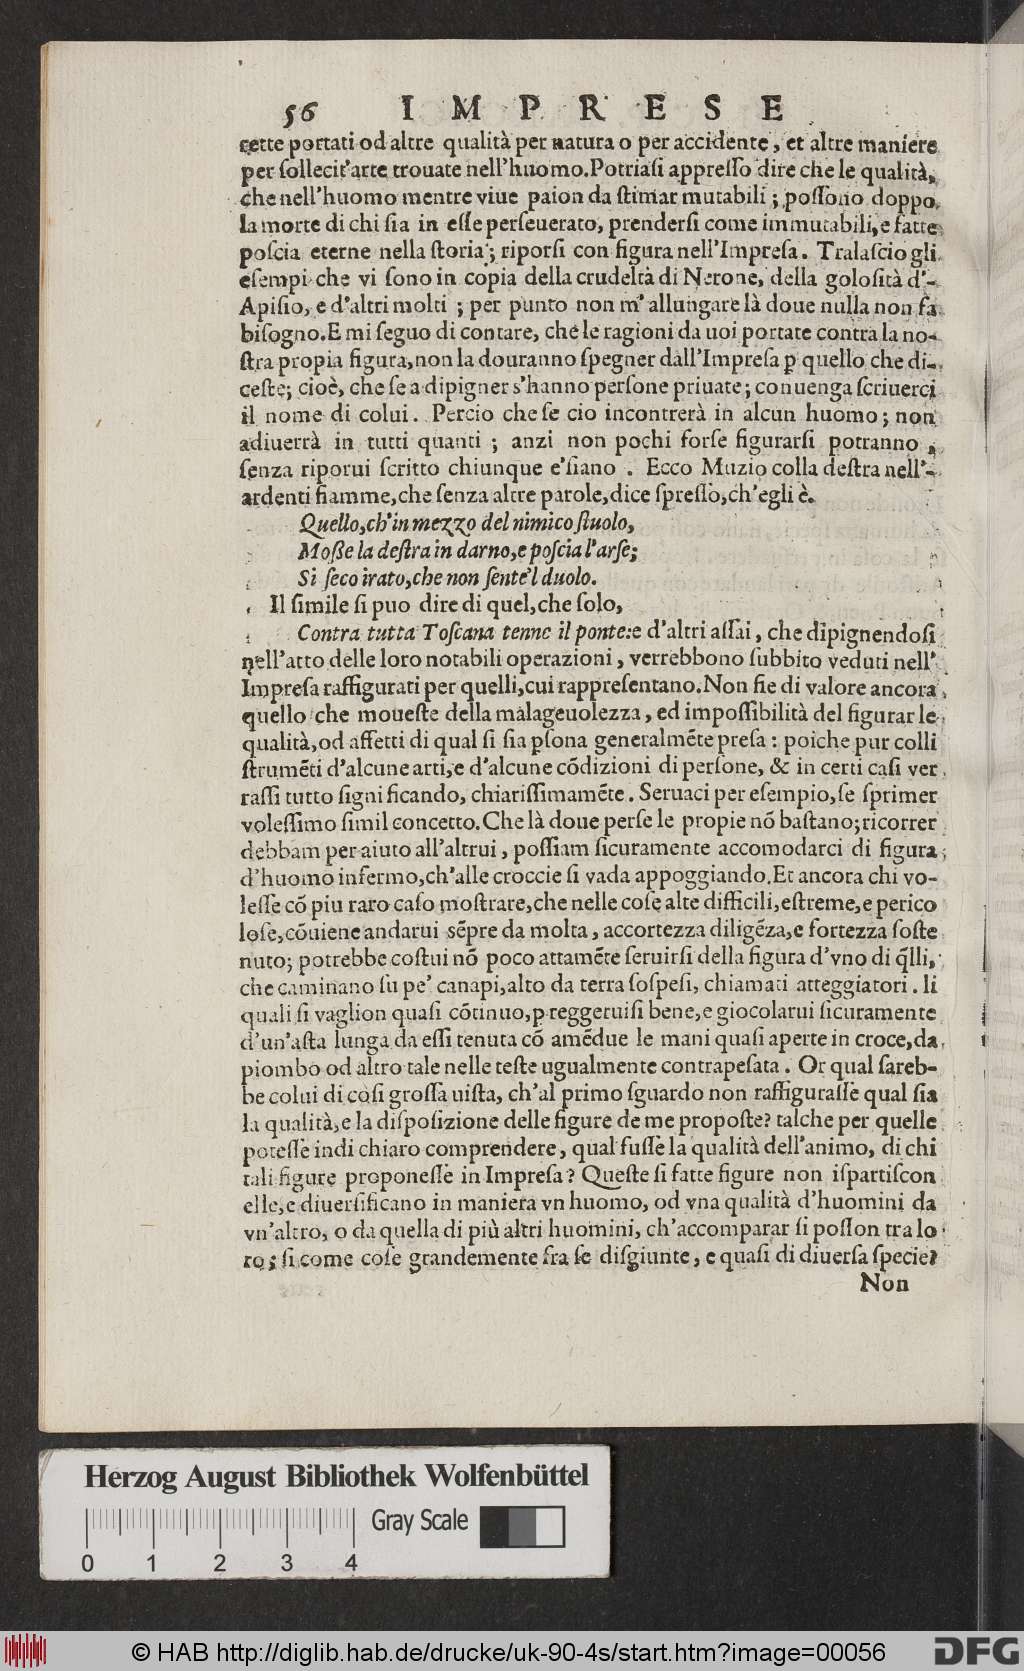 56 IMPRESE
cette portati od altre qualità per natura o per accidente, et altre maniere
per ſollecit'arte trouate nell'huomo. Potriaſi appreſſo dire che le qualità,
che nell'huomo mentre viue paion da ſtimar mutabili; poſſono doppo
la morte di chi ſia in eſſe perſeuerato, prenderſi come immutabili, e fatte
poſcia eterne nella ſtoria; riporſi con figura nell'Impreſa. Tralaſcio gli
eſempi che vi ſono in copia della crudeltà di Nerone, della goloſità d'-
Apiſio, e d'altri molti; per punto non m'allungare là doue nulla non fa
biſogno. E mi ſeguo di contare, che le ragioni da uoi portate contra la no-
ſtra propia figura, non la douranno ſpegner dall'Impreſa ꝑ quello che di-
ceſte; cioè, che ſe a dipigner s'hanno perſone priuate; conuenga ſcriuerci
il nome di colui. Percio che ſe cio incontrerà in alcun huomo; non
adiuerrà in tutti quanti; anzi non pochi forſe figurarſi potranno,
ſenza riporui ſcritto chiunque e'ſiano. Ecco Muzio colla deſtra nell'-
ardenti fiamme, che ſenza altre parole, dice ſpreſſo, ch'egli è.
Quello, ch'in mezzo del nimico ſtuolo,
Moſſe la deſtra in darno, e poſcia l'arſe;
Si ſeco irato, che non ſente'l duolo.
Il ſimile ſi puo dire di quel, che ſolo,
Contra tutta Toſcana tenne il ponte: e d'altri aſſai, che dipignendoſi
nell'atto delle loro notabili operazioni, verrebbono ſubbito veduti nell'
Impreſa raffigurati per quelli, cui rappreſentano. Non fie di valore ancora
quello che moueſte della malageuolezza, ed impoſſibilità del figurar le
qualità, od affetti di qual ſi ſia ꝑſona generalmẽte preſa: poiche pur colli
ſtrumẽti d'alcune arti, e d'alcune cõdizioni di perſone, & in certi caſi ver
raſſi tutto ſigni ficando, chiariſſimamẽte. Seruaci per eſempio, ſe ſprimer
voleſſimo ſimil concetto. Che là doue perſe le propie nõ baſtano; ricorrer
debbam per aiuto all'altrui, poſſiam ſicuramente accomodarci di figura
d'huomo infermo, ch'alle croccie ſi vada appoggiando. Et ancora chi vo-
leſſe cõ piu raro caſo moſtrare, che nelle coſe alte difficili, eſtreme, e perico
loſe, cõuiene andarui sẽpre da molta, accortezza diligẽza, e fortezza ſoſte
nuto; potrebbe coſtui nõ poco attamẽte ſeruirſi della figura d'vno di q̃lli,
che caminano ſu pe' canapi, alto da terra ſoſpeſi, chiamati atteggiatori. li
quali ſi vaglion quaſi cõtinuo, ꝑ reggeruiſi bene, e giocolarui ſicuramente
d'un'aſta lunga da eſſi tenuta cõ amẽdue le mani quaſi aperte in croce, da
piombo od altro tale nelle teſte ugualmente contrapeſata. Or qual ſareb-
be colui di coſi groſſa uiſta, ch'al primo ſguardo non raffiguraſſe qual ſia
la qualità, e la diſpoſizione delle figure de me propoſte? talche per quelle
poteſſe indi chiaro comprendere, qual fuſſe la qualità dell'animo, di chi
tali figure proponeſſe in Impreſa? Queſte ſi fatte figure non iſpartiſcon
elle, e diuerſificano in maniera vn huomo, od vna qualità d'huomini da
vn'altro, o da quella di più altri huomini, ch'accomparar ſi poſſon tra lo
ro; ſi come coſe grandemente fra ſe diſgiunte, e quaſi di diuerſa ſpecie?
Non
Herzog August Bibliothek Wolfenbüttel
Gray Scale
0 1 2 3 4
© HAB http://diglib.hab.de/drucke/uk-90-4s/start.htm?image=00056
DFG